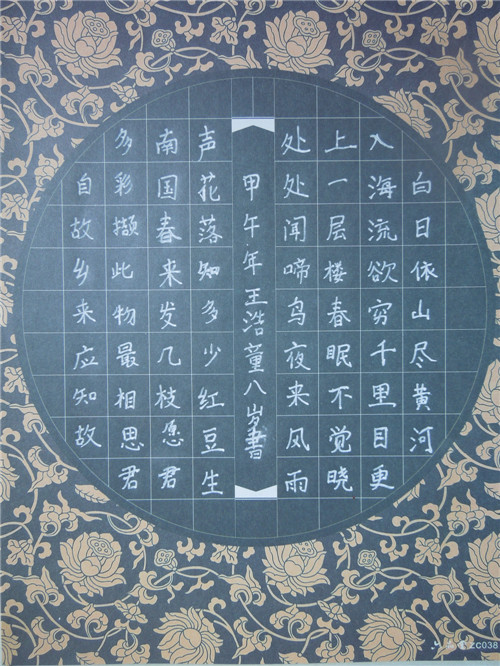 白日依山尽黄河
入海流欲穷千里目更
上一层楼春眠不觉晓
处处闻啼鸟夜来风雨
甲午年王浩董八岁書
声花落知多少红豆生
南国春来发几枝愿君
多彩撷此物最相思君
自故乡来应知故
ZC038